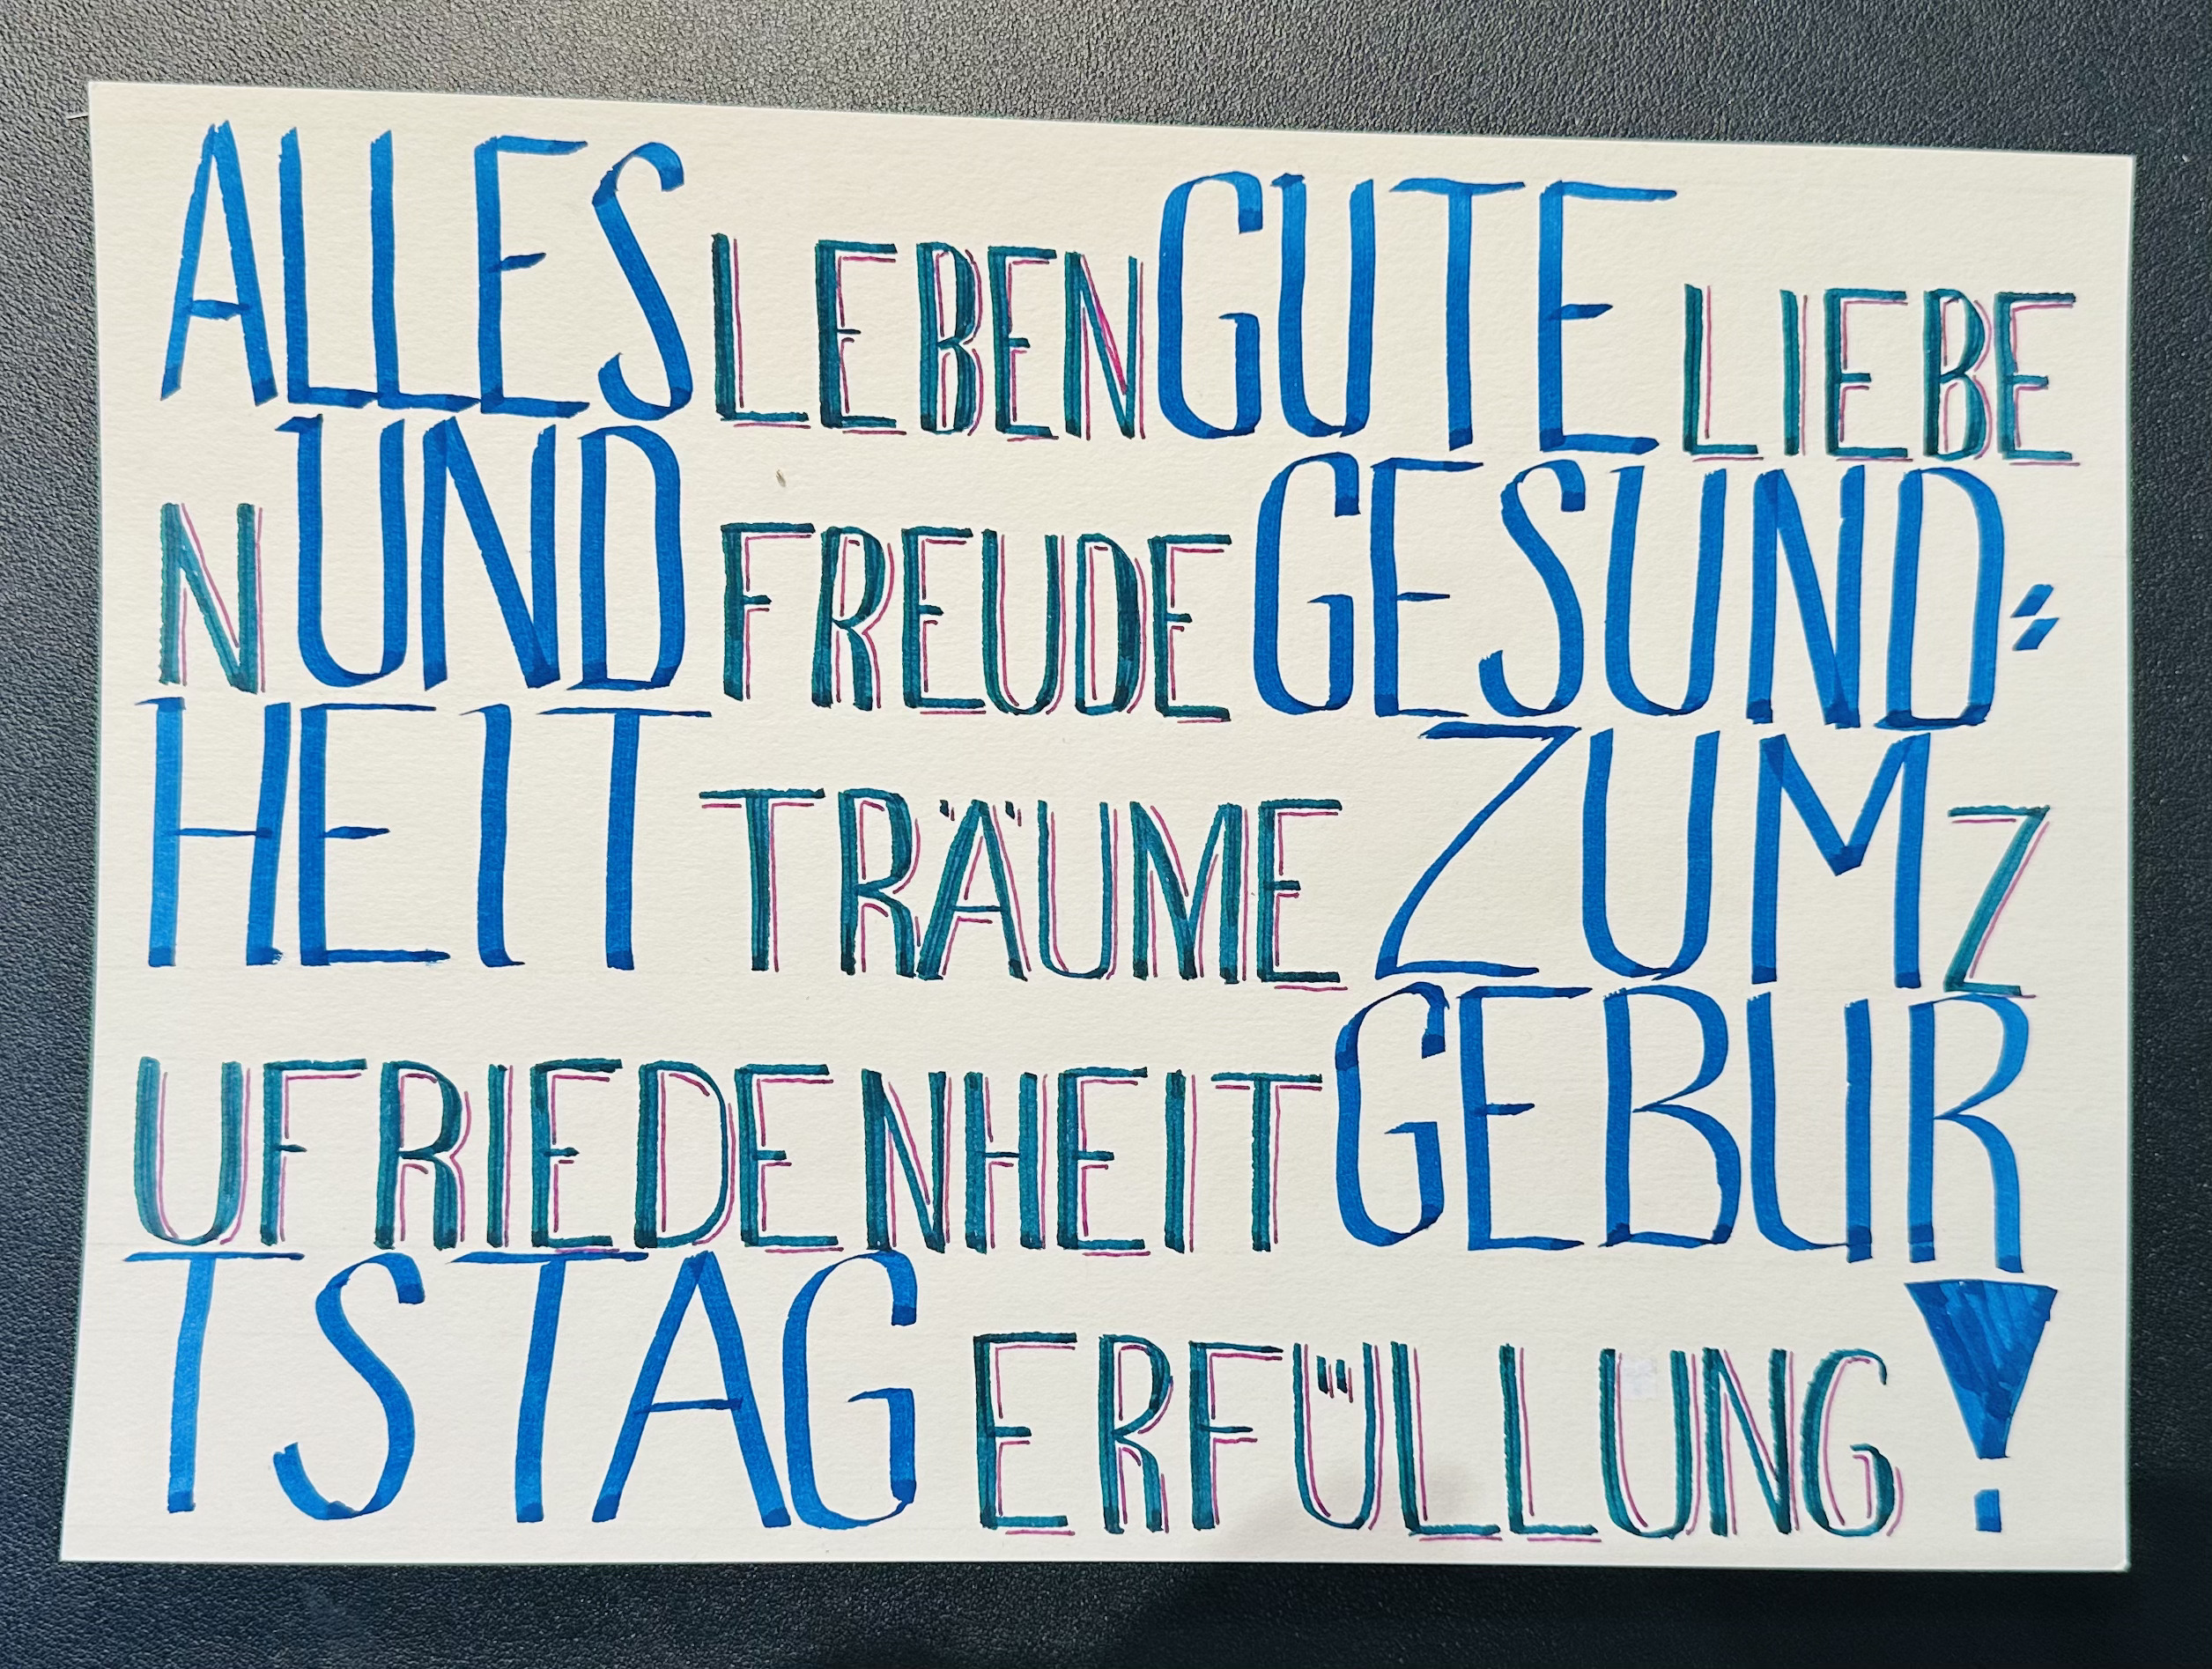 ALLES LEBEN GUTE LIEBE
N UND FREUDE GESUND=
HEIT TRÄUME ZUM Z
UFRIEDENHEIT GEBUR
TSTAG ERFÜLLUNG!